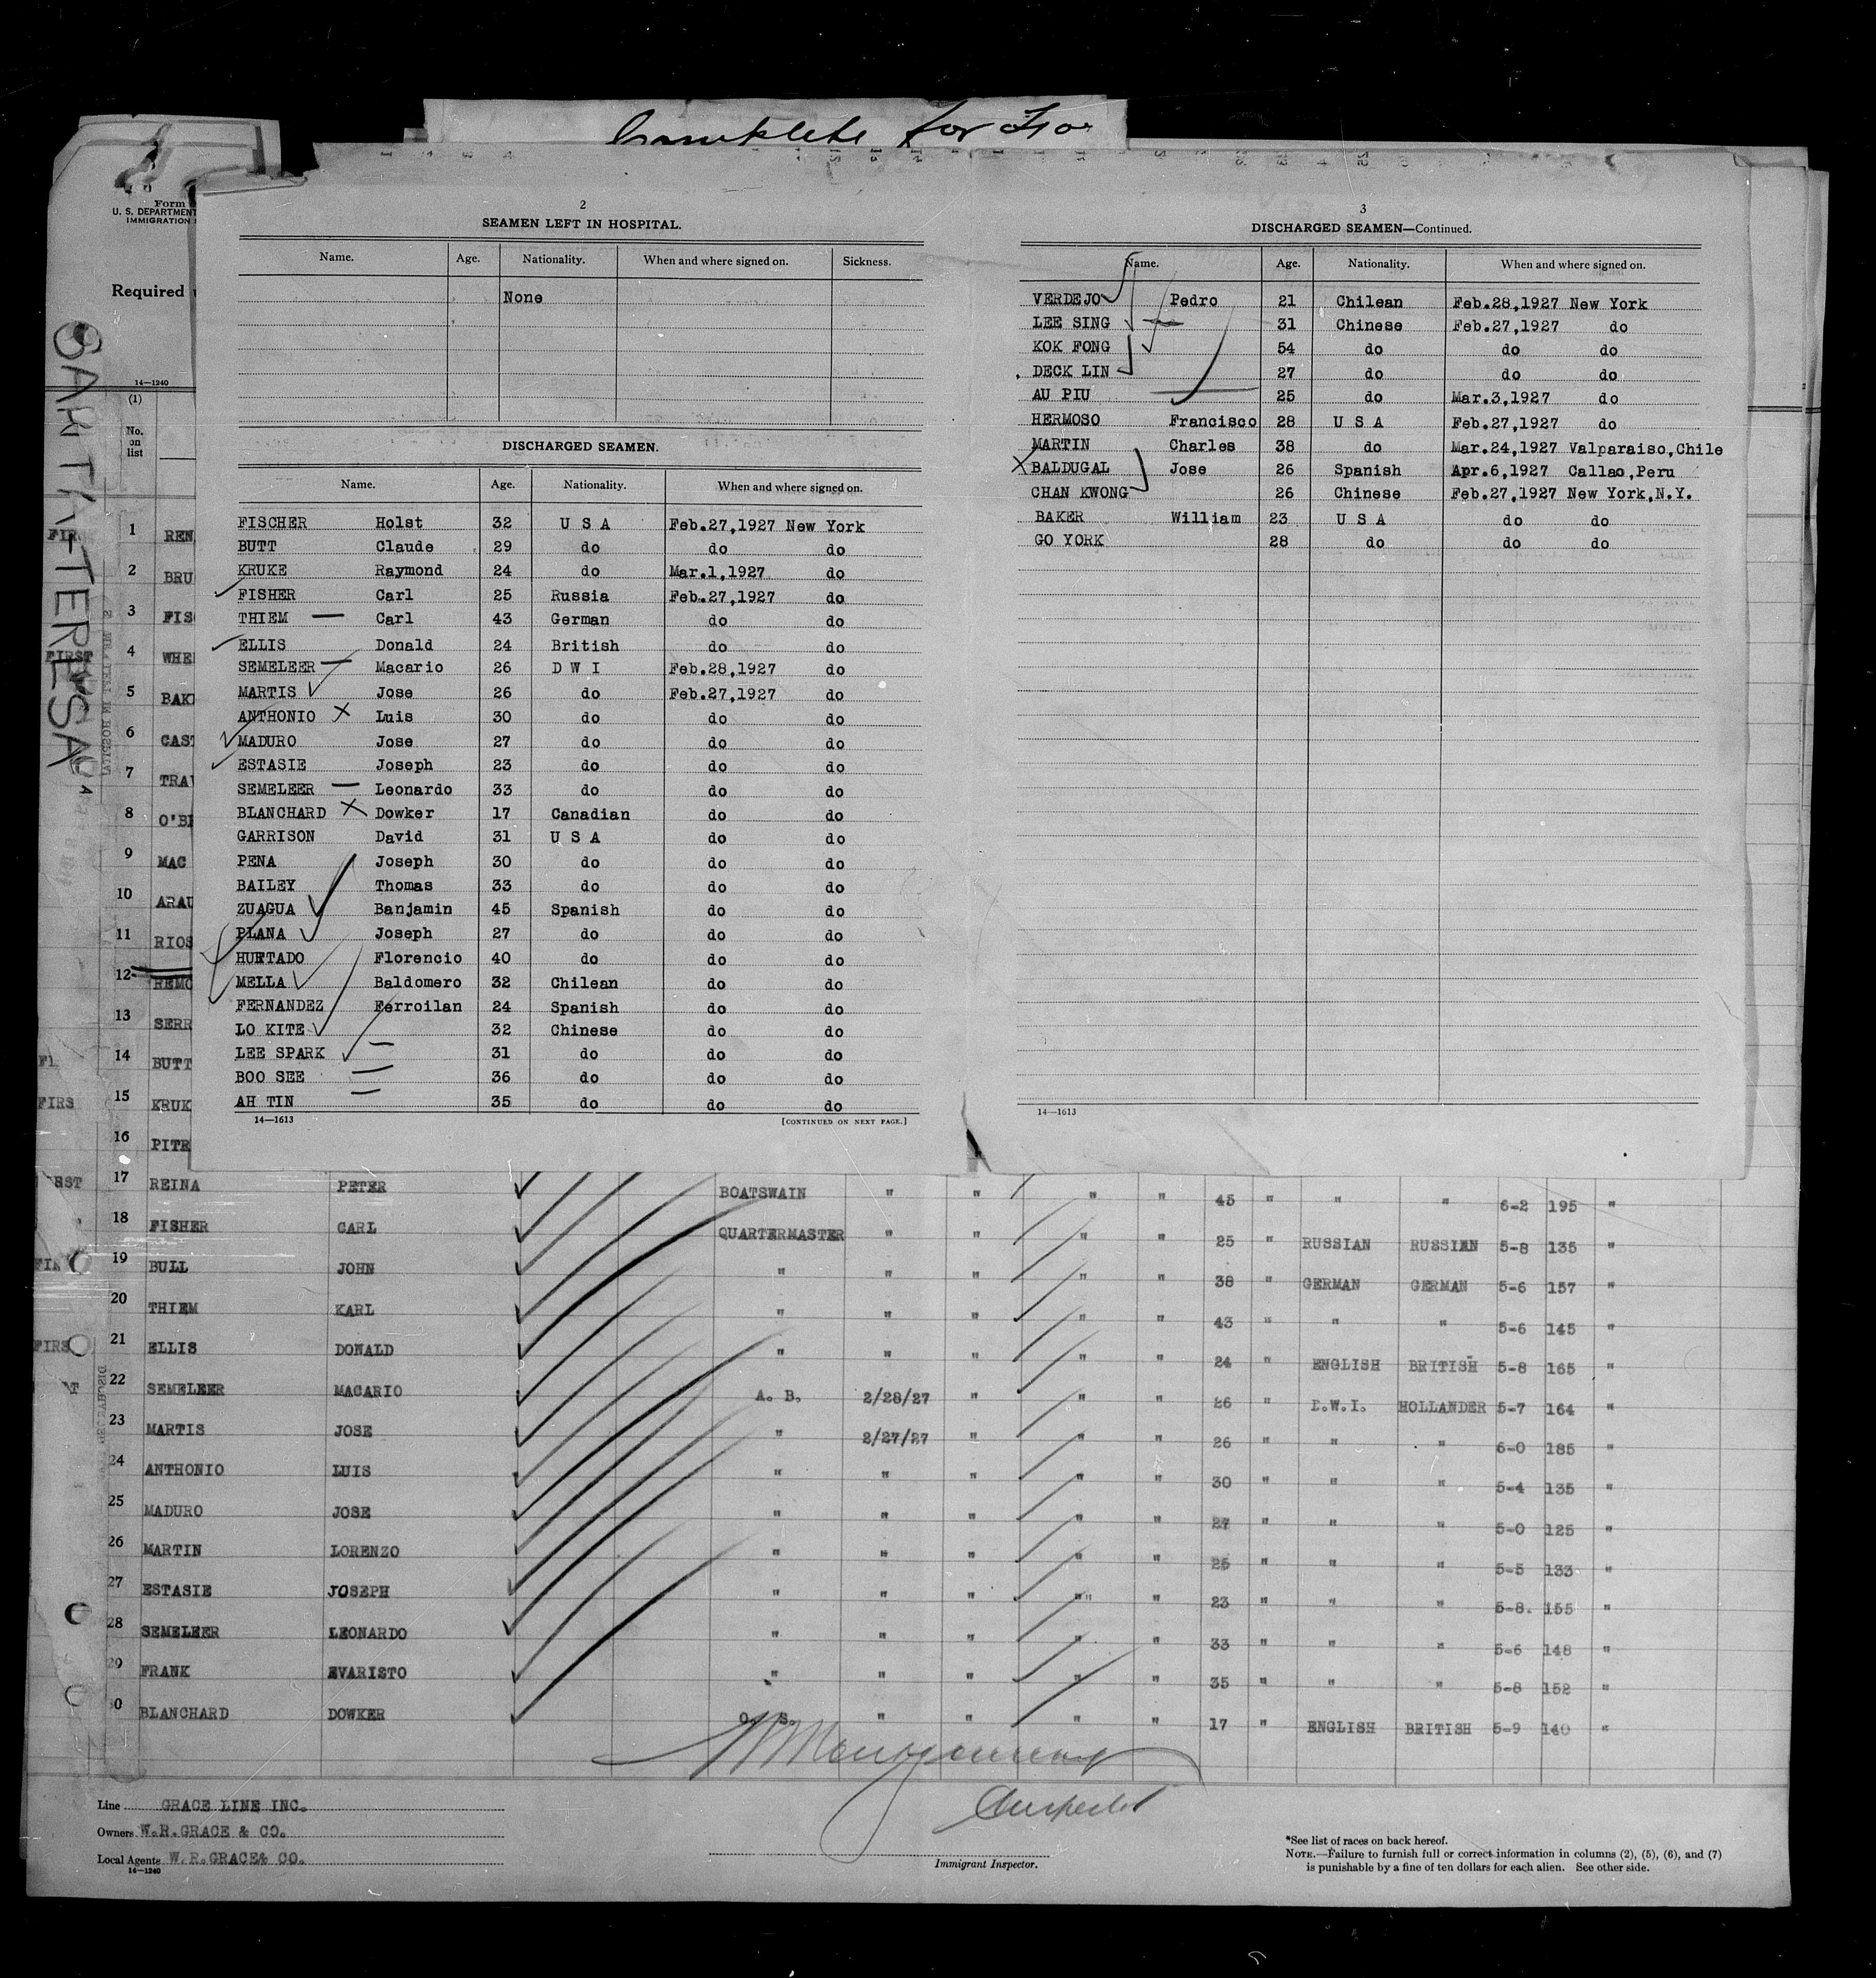 Complete for
Form
U. S. DEPARTMENT
IMMIGRATION
Required
SANTA TERESA
14—1240
(1)
No.
on
list
2
SEAMEN LEFT IN HOSPITAL.
Name. Age. Nationality. When and where signed on. Sickness.
None
DISCHARGED SEAMEN.
Name. Age. Nationality. When and where signed on.
FISCHER Holst 32 U S A Feb.27,1927 New York
BUTT Claude 29 do do do
KRUKE Raymond 24 do Mar.1,1927 do
FISHER Carl 25 Russia Feb.27,1927 do
THIEM — Carl 43 German do do
ELLIS Donald 24 British do do
SEMELEER — Macario 26 D W I Feb.28,1927 do
MARTIS Jose 26 do Feb.27,1927 do
ANTHONIO X Luis 30 do do do
MADURO Jose 27 do do do
ESTASIE Joseph 23 do do do
SEMELEER — Leonardo 33 do do do
BLANCHARD X Dowker 17 Canadian do do
GARRISON David 31 U S A do do
PENA Joseph 30 do do do
BAILEY Thomas 33 do do do
ZUAGUA Banjamin 45 Spanish do do
PLANA Joseph 27 do do do
HURTADO Florencio 40 do do do
MELLA Baldomero 32 Chilean do do
FERNANDEZ Ferroilan 24 Spanish do do
LO KITE 32 Chinese do do
LEE SPARK — 31 do do do
BOO SEE — 36 do do do
AH TIN — 35 do do do
14—1613 [CONTINUED ON NEXT PAGE.]
3
DISCHARGED SEAMEN—Continued.
Name. Age. Nationality. When and where signed on.
VERDEJO Pedro 21 Chilean Feb.28,1927 New York
LEE SING — 31 Chinese Feb.27,1927 do
KOK FONG 54 do do do
DECK LIN 27 do do do
AU PIU — 25 do Mar.3,1927 do
HERMOSO Francisco 28 U S A Feb.27,1927 do
MARTIN Charles 38 do Mar.24,1927 Valparaiso,Chile
X BALDUGAL Jose 26 Spanish Apr.6,1927 Callao,Peru
CHAN KWONG 26 Chinese Feb.27,1927 New York,N.Y.
BAKER William 23 U S A do do
GO YORK 28 do do do
14—1613
1 REN
2 BRU
3 FIS
FIRST 4 WHE
5 BAK
6 CAST
7 TRA
8 O'B
9 MAC
10 ARAU
11 RIOS
12 REMO
13 SERR
14 BUTT
FIRS 15 KRUK
16 PITR
17 REINA PETER BOATSWAIN " " " " 45 " " " 6-2 195 "
18 FISHER CARL QUARTERMASTER " " " " 25 " RUSSIAN RUSSIEN 5-8 135 "
19 BULL JOHN " " " " " 38 " GERMAN GERMAN 5-6 157 "
20 THIEM KARL " " " " " 43 " " " 5-6 145 "
FIRS 21 ELLIS DONALD " " " " " 24 " ENGLISH BRITISH 5-8 165 "
22 SEMELEER MACARIO A. B. 2/28/27 " " " 26 " D.W.I. HOLLANDER 5-7 164 "
23 MARTIS JOSE " 2/27/27 " " " 26 " " " 6-0 185 "
24 ANTHONIO LUIS " " " " " 30 " " " 5-4 135 "
25 MADURO JOSE " " " " " 27 " " " 5-0 125 "
26 MARTIN LORENZO " " " " " 25 " " " 5-5 133 "
27 ESTASIE JOSEPH " " " " " 23 " " " 5-8. 155 "
28 SEMELEER LEONARDO " " " " " 33 " " " 5-6 148 "
29 FRANK EVARISTO " " " " " 35 " " " 5-8 152 "
30 BLANCHARD DOWKER O. S. " " " " 17 " ENGLISH BRITISH 5-9 140 "
Montgomery
Inspector
Line GRACE LINE INC.
Owners W.R.GRACE & CO.
Local Agents W.R.GRACE& CO.
14—1240
Immigrant Inspector.
*See list of races on back hereof.
NOTE.—Failure to furnish full or correct information in columns (2), (5), (6), and (7)
is punishable by a fine of ten dollars for each alien. See other side.